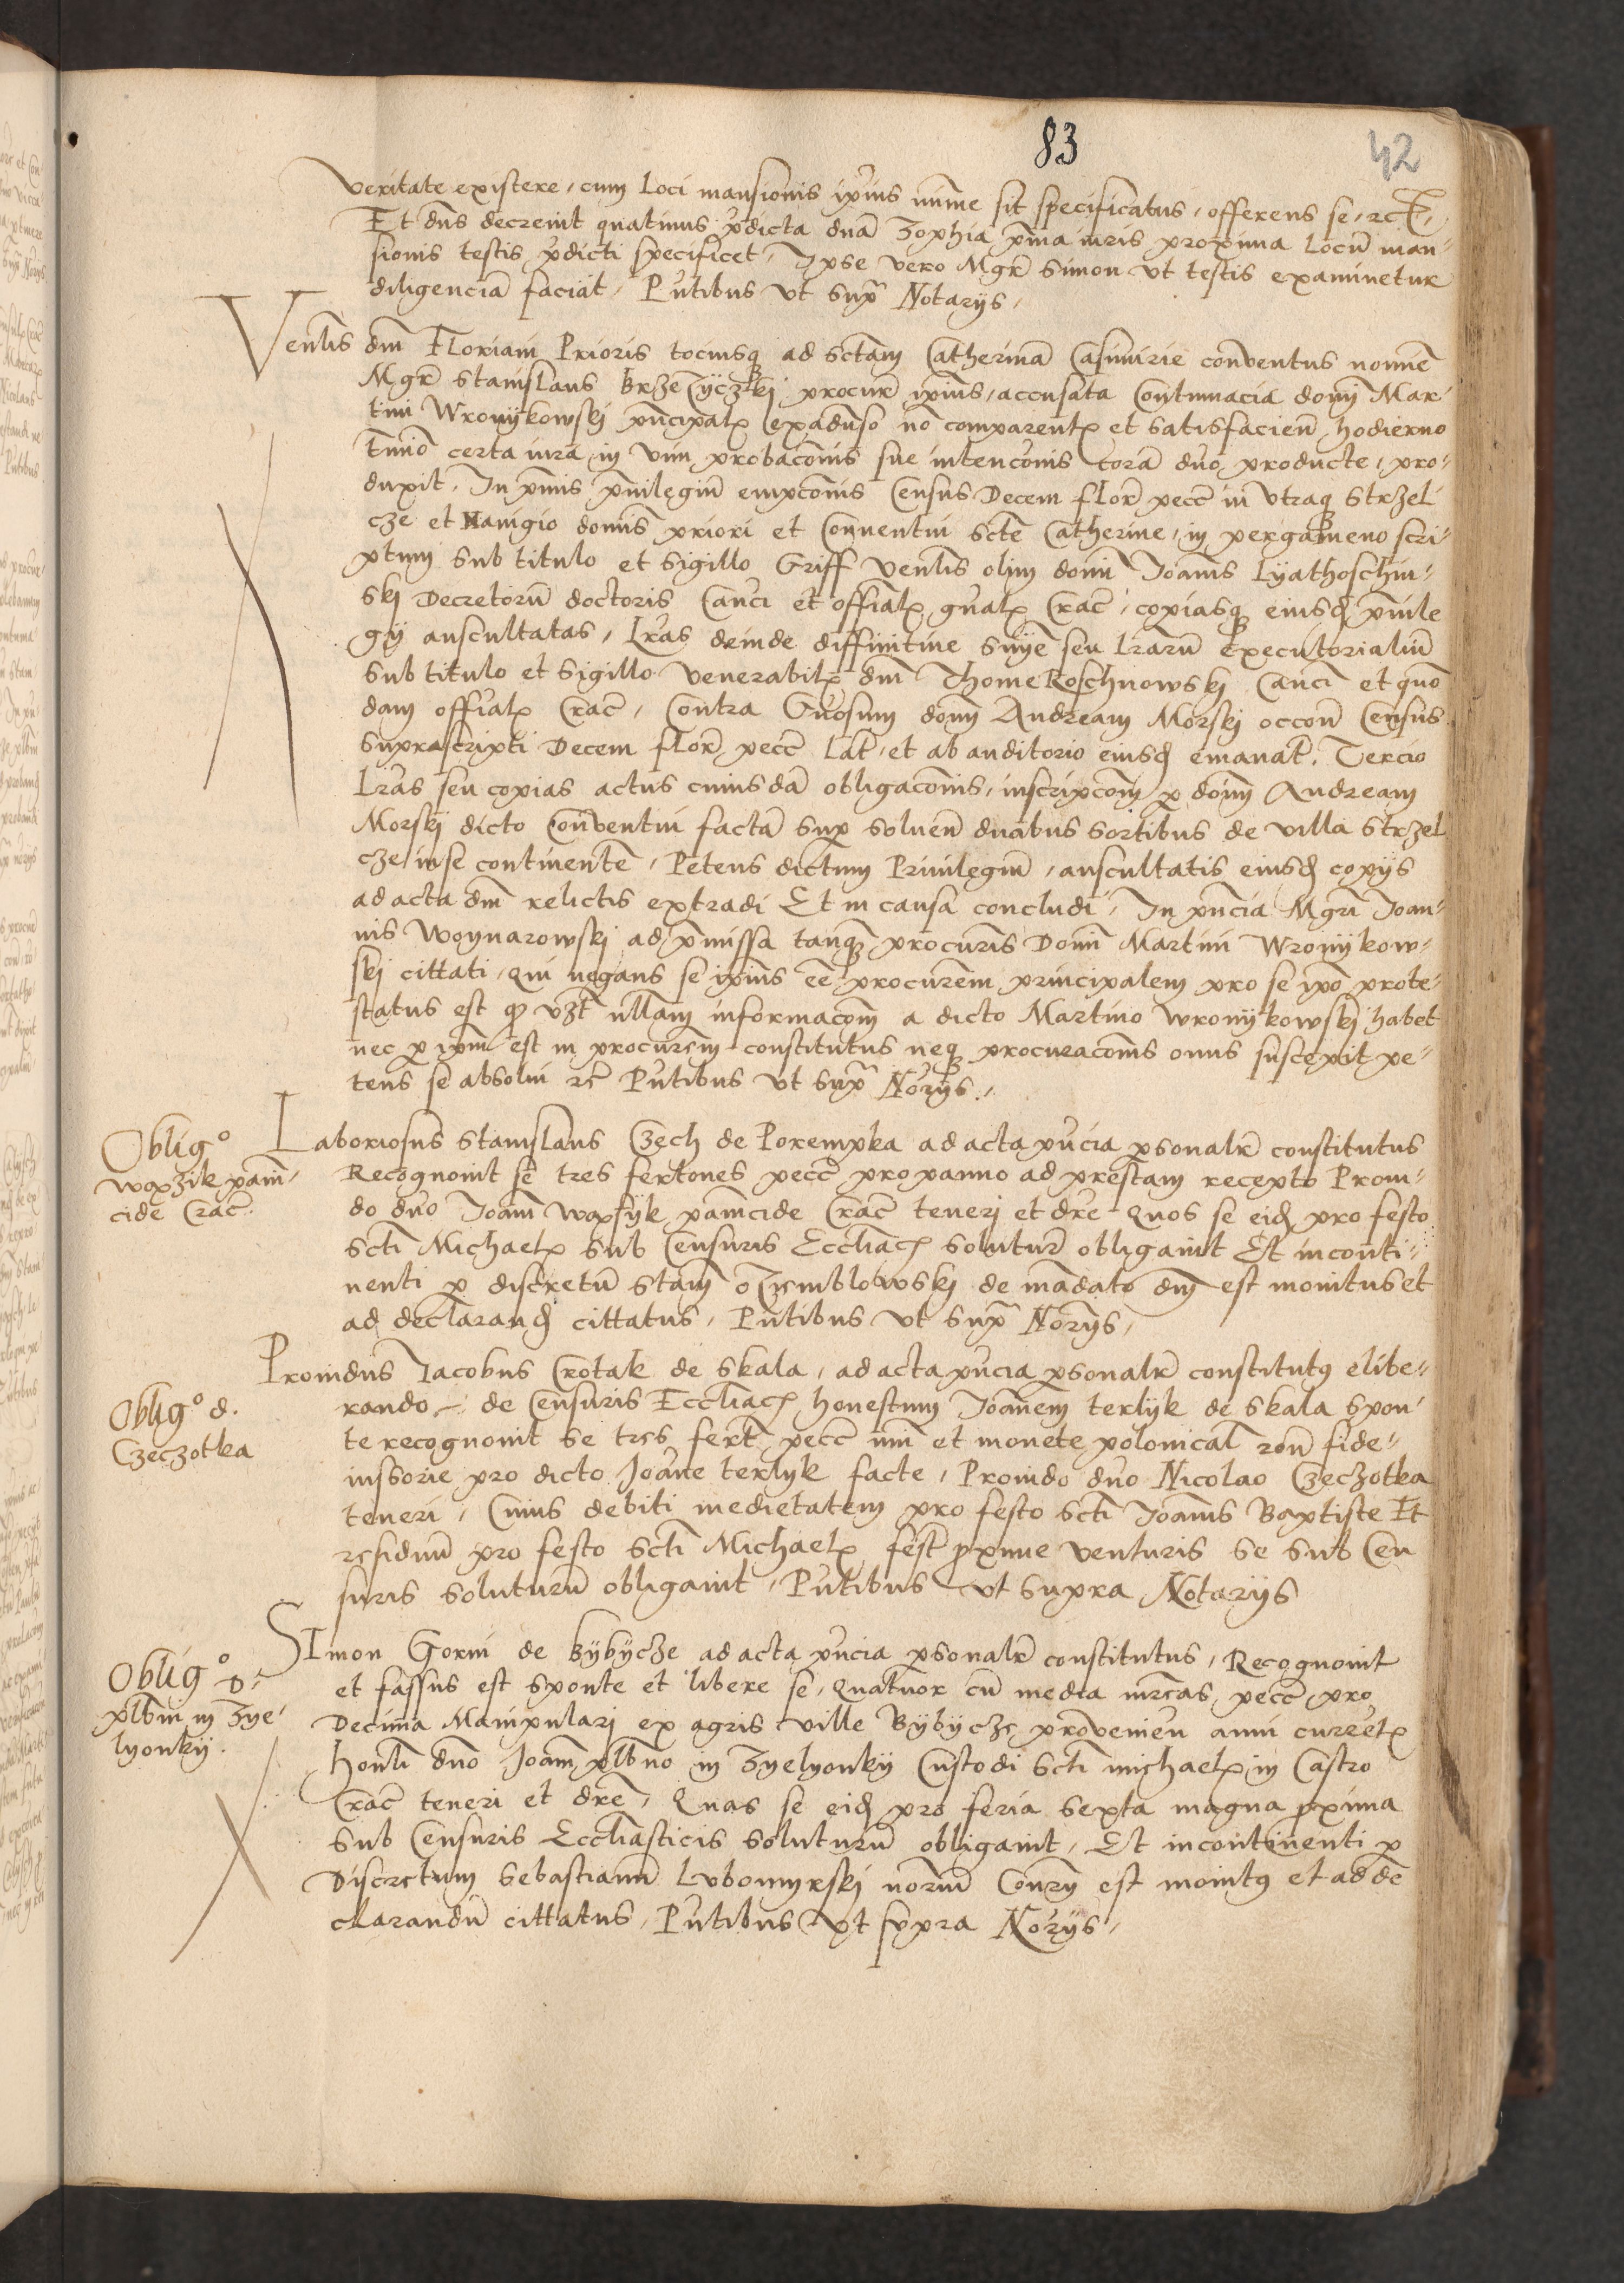 83
42
veritate existere, cum loci mansionis ipius minime sit specificatus, offerens se, rct,
Et dns decrevit quatinus pdicta dna Zophia pma iuris proxima locum man-
sionis testis pdicti specificet, Ipse vero Mgr Simon ut testis examinetur
diligenciam faciat, Pntibus ut supra Notariis,
Venlis dni Floriani Prioris tociusq ad sctam Catherinam Casimirie conventus nomine
Mgr Stanislaus procur ipius, accusata contumacia domini Mar-
tini Wronykowski principalis ex adverso non comparentis et satisfacien hodierno
termino certa iura in vim probaconis sue intencionis coram dno producte, pro-
duxit, In primis privilegium empconis census Decem flor pecc in utraq Strzel-
cze et Navigio dominis priori et conventui scte Catherine, in pergameno scri-
ptum sub titulo et sigillo Griff venlis olim domini Joannis Lyathoschin-
ski Decretorum doctoris Canci et offialis gnalis Crac, copiasq eiusd privile
gii auscultatas, Lras deinde diffinitive snye seu lrarum executorialium
sub titulo et sigillo venerabilis dni Thome Roschnowski Canci et quon
dam offialis Crac, Contra Gnosum donm Andream Morski occone Census
suprascripti Decem flor pecc lat, et ab auditorio eiusd emanat, Tercio
Lras seu copias actus cuiusdam obligaconis, inscripconem p donm Andream
Morski dicto Conventui factam sup solven duabus sortibus de villa Strzel
cze in se continente, Petens dictum Privilegium, auscultatis eiusd copiis
ad acta dni relictis extradi Et in causa concludi, In pncia Mgri Joan-
nis Woynarowski ad pmissa tanq procuris Domini Martini Wronykow-
ski cittati, Qui negans se ipius ee procurem principalem pro se ipo prote-
status est q nullam informaconem a dicto Martino Wronykowski habet
nec p ipm est in procurem constitutus neq procuraconis onus suscepit pe-
tens se absolvi rc Pntibus ut supra Noriis,
Obligo
woxzik panni-
cide Crac.
Laboriosus Stanislaus Czech de Porempka ad acta pncia psonalr constitutus
Recognovit se tres fertones pecc pro panno ad prestam recepto Provi-
do dno Joanni woxsyk pannicide Crac teneri et dre Quos se eid pro festo
scti Michaelis sub Censuris Eccliacis soluturum obligavit Et inconti-
nenti p discretum Stanm de mandato dni est monitus et
ad declarand cittatus, Pntibus ut supra Noriis,
Obligo d.
Czeczotka
Providus Jacobus Crotak de Skala, ad acta pncia psonalr constitutus elibe-
rando, de Censuris Eccliacis honestum Joannem terlyk de Skala spon-
te recognovit se tres fert pecc nui et monete polonical ron fide-
iussorie pro dicto Joanne terlyk facte, Provido dno Nicolao Czeczotka
teneri, Cuius debiti medietatem pro festo scti Joannis Baptiste Et
residuum pro festo scti Michaelis fest pxime venturis se sub Cen
suris soluturum obligavit, Pntibus ut supra Notariis
Obligo D.
plbni in Zye-
lyonky.
Simon Gorni de Bybycze ad acta pncia psonalr constitutus, Recognovit
et fassus est sponte et libere se, Quatuor cum media mrcas pecc pro
Decima Manipulari ex agris ville Bybycze provenien anni currentis
honli dno Joanni plbno in Zyelyonky Custodi scti michaelis in Castro
Crac teneri et dre, Quas se eid pro feria sexta magna pxima
sub Censuris Eccliasticis soluturum obligavit, Et incontinenti p
Discretum Sebastianum Lubomyrski norium Conry est monitus et ad de
clarandum cittatus, Pntibus ut supra Noriis,